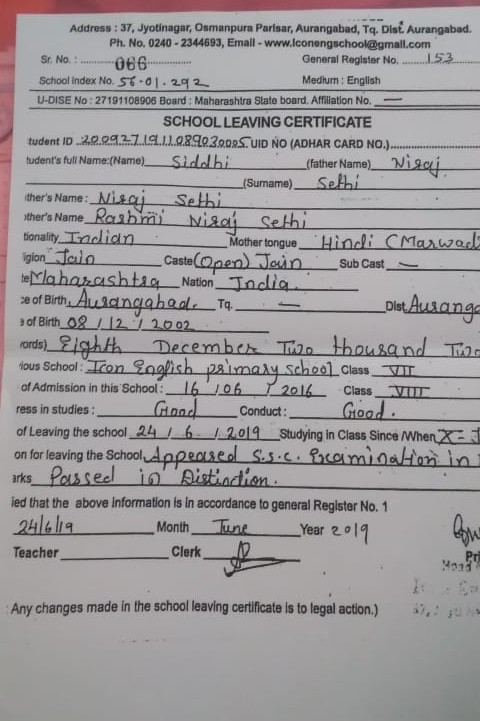 Address : 37, Jyotinagar, Osmanpura Parisar, Aurangabad, Tq. Dist. Aurangabad.
Ph. No. 0240 - 2344693, Email - www.iconengschool@gmail.com
Sr. No. : 066 General Register No. 153
School Index No. 56-01.292 Medium : English
U-DISE No : 27191108906 Board : Maharashtra State board. Affiliation No. —
SCHOOL LEAVING CERTIFICATE
tudent ID 2009271911089030005 UID NO (ADHAR CARD NO.)
tudent's full Name:(Name) Siddhi (father Name) Niraj
(Surname) Sethi
ther's Name : Niraj Sethi
other's Name Rashmi Niraj Sethi
tionality Indian Mother tongue Hindi (Marwad
igion Jain Caste (Open) Jain Sub Cast —
te Maharashtra Nation India
ce of Birth, Aurangabad. Tq. — Dist Auranga
e of Birth 08 / 12 / 2002
words) Eighth December Two thousand Two
ious School : Icon English primary school Class VII
of Admission in this School : 16 / 06 / 2016 Class VIII
ress in studies : Good Conduct : Good.
of Leaving the school 24 / 6 / 2019 Studying in Class Since /When X =
on for leaving the School, Appeared S.S.C. Examination in
arks Passed in Distinction.
ied that the above information is in accordance to general Register No. 1
24/6/19 Month June Year 2019
Teacher Clerk Pri
Any changes made in the school leaving certificate is to legal action.)